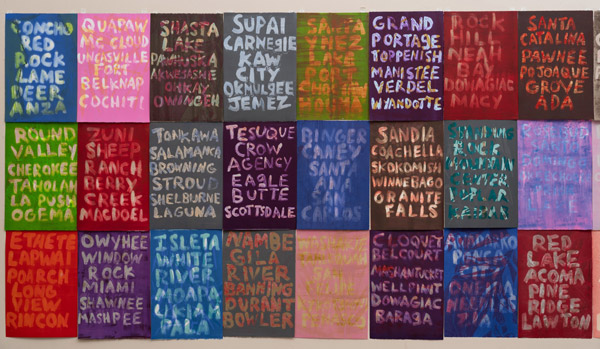 CONCHO
RED
ROCK
LAME
DEER
ANZA
QUAPAW
Mc CLOUD
UNCASVILLE
FORT
BELKNAP
COCHITI
SHASTA
LAKE
PAWHUSKA
AKWESASHE
OHKAY
OWINGEH
SUPAI
CARNEGIE
KAW
CITY
OKMULGEE
JEMEZ
SANTA
YNEZ
LAKE
GRAND
PORTAGE
TOPPENISH
MANISTEE
VERDEL
WYANDOTTE
ROCK
HILL
NEAH
BAY
DOWAGIAC
MACY
SANTA
CATALINA
PAWNEE
POJOAQUE
GROVE
ADA
ROUND
VALLEY
CHEROKEE
TAHOLAH
LA PUSH
OGEMA
ZUNI
SHEEP
RANCH
BERRY
CREEK
MACDOEL
TONKAWA
SALAMANCA
BROWNING
STROUD
SHELBURNE
LAGUNA
TESUQUE
CROW
AGENCY
EAGLE
BUTTE
SCOTTSDALE
BINGER
CANEY
SANTA
ANA
SAN
CARLOS
SANDIA
COACHELLA
SKOKOMISH
WINNEBAGO
GRANITE
FALLS
ROCK
ETHETE
LAPWAI
POARCH
LONG
VIEW
RINCON
OWYHEE
WINDOW
ROCK
MIAMI
SHAWNEE
MASHPEE
ISLETA
WHITE
RIVER
MOAPA
UKIAH
PALA
NAMBE
GILA
RIVER
BANNING
DURANT
BOWLER
CLOQUET
BELCOURT
MASHANTUCKET
WELLPINIT
DOWAGIAC
BARAGA
ANADARKO
PONCA
ONEIDA
NEEDLES
RED
LAKE
ACOMA
PINE
RIDGE
LAWTON